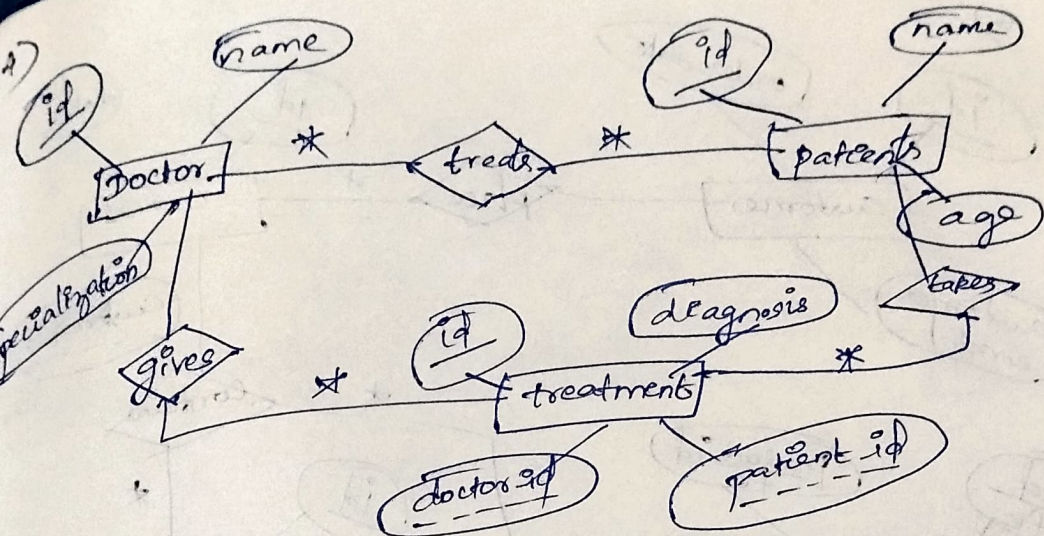 4)
id
name
id
name
Doctor
*
treats
*
patients
age
specialization
takes
diagnosis
id
gives
*
treatment
*
doctor id
patient id